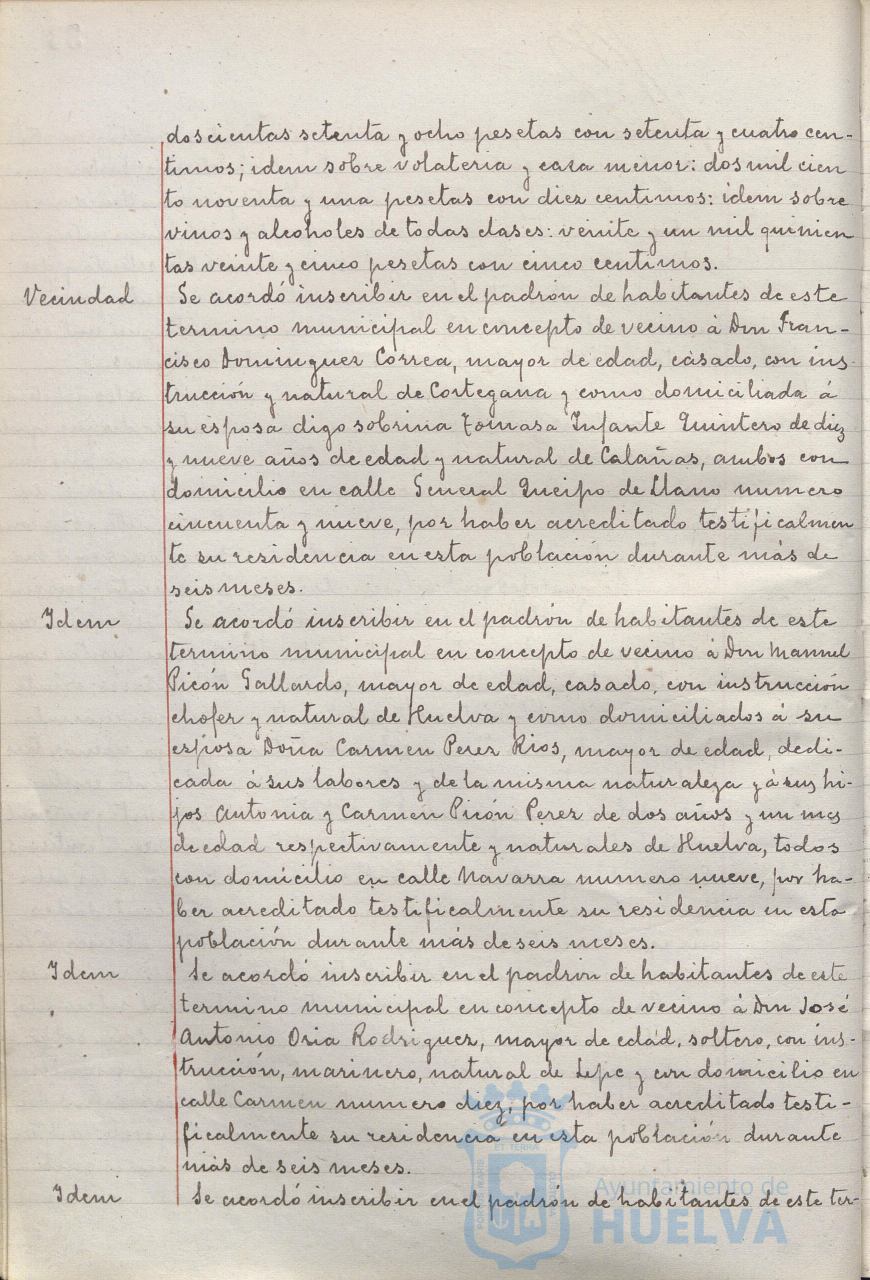 doscientas setenta y ocho pesetas con setenta y cuatro cen-
timos; idem sobre volateria y caza menor: dos mil cien
to noventa y una pesetas con diez centimos: idem sobre
vinos y alcoholes de todas clases: veinte y un mil quinien
tas veinte y cinco pesetas con cinco centimos.
Vecindad
Se acordó inscribir en el padrón de habitantes de este
termino municipal en concepto de vecino à Don Fran-
cisco Dominguez Correa, mayor de edad, casado, con ins-
trucción y natural de Cortegana y como domiciliada á
su esposa digo sobrina Tomasa Infante Quintero de diez
y nueve años de edad y natural de Calañas, ambos con
domicilio en calle General Queipo de Llano numero
cincuenta y nueve, por haber acreditado testificalmen
te su residencia en esta población durante más de
seis meses.
Idem
Se acordó inscribir en el padrón de habitantes de este
termino municipal en concepto de vecino à Don Manuel
Picón Gallardo, mayor de edad, casado, con instrucción
chofer y natural de Huelva y como domiciliados á su
esposa Doña Carmen Perez Rios, mayor de edad, dedi-
cada á sus labores y de la misma naturaleza y á sus hi-
jos Antonia y Carmen Picón Perez de dos años y un mes
de edad respectivamente y naturales de Huelva, todos
con domicilio en calle Navarra numero nueve, por ha-
ber acreditado testificalmente su residencia en esta
población durante más de seis meses.
Idem
Se acordó inscribir en el padrón de habitantes de este
termino municipal en concepto de vecino à Don José
Antonio Oria Rodriguez, mayor de edad, soltero, con ins-
trucción, marinero, natural de Lepe y con domicilio en
calle Carmen numero diez, por haber acreditado testi-
ficalmente su residencia en esta población durante
más de seis meses.
Idem
Se acordó inscribir en el padrón de habitantes de este ter-
Ayuntamiento de
HUELVA